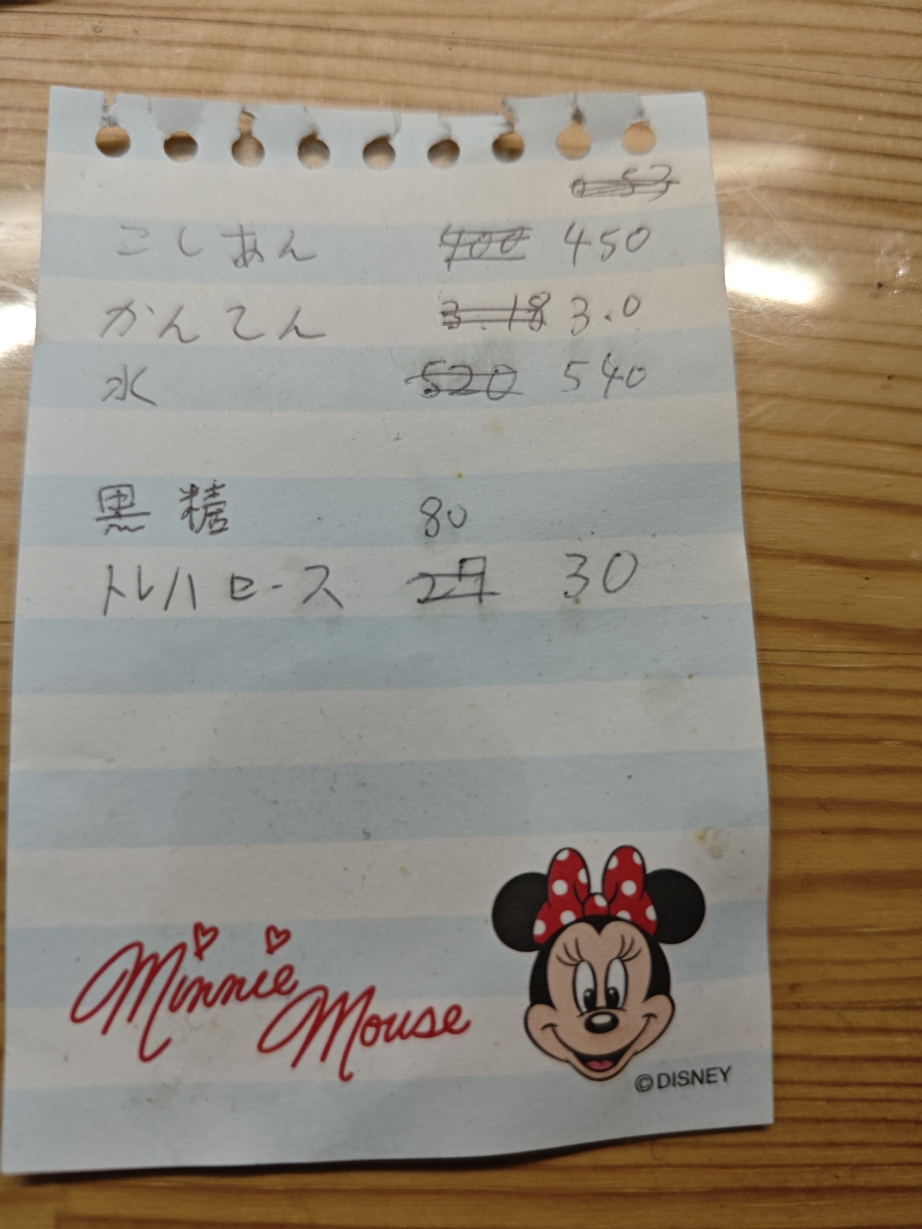 0.53
こしあん 400 450
かんてん 3.18 3.0
水 520 540
黒糖 80
トレハロース 27 30
Minnie
Mouse
©DISNEY